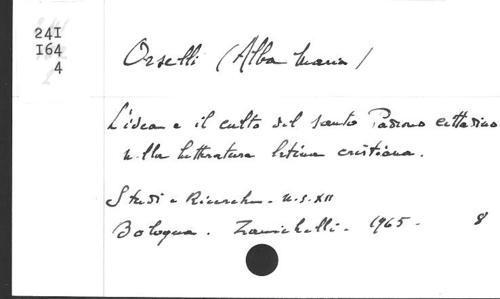 241
I64
4
Orselli (Alba Maria)
L'idea e il culto del santo Patrono cittadino
nella letteratura latina cristiana.
Studi e Ricerche - n.s. XII
Bologna. Zanichelli - 1965 - 8